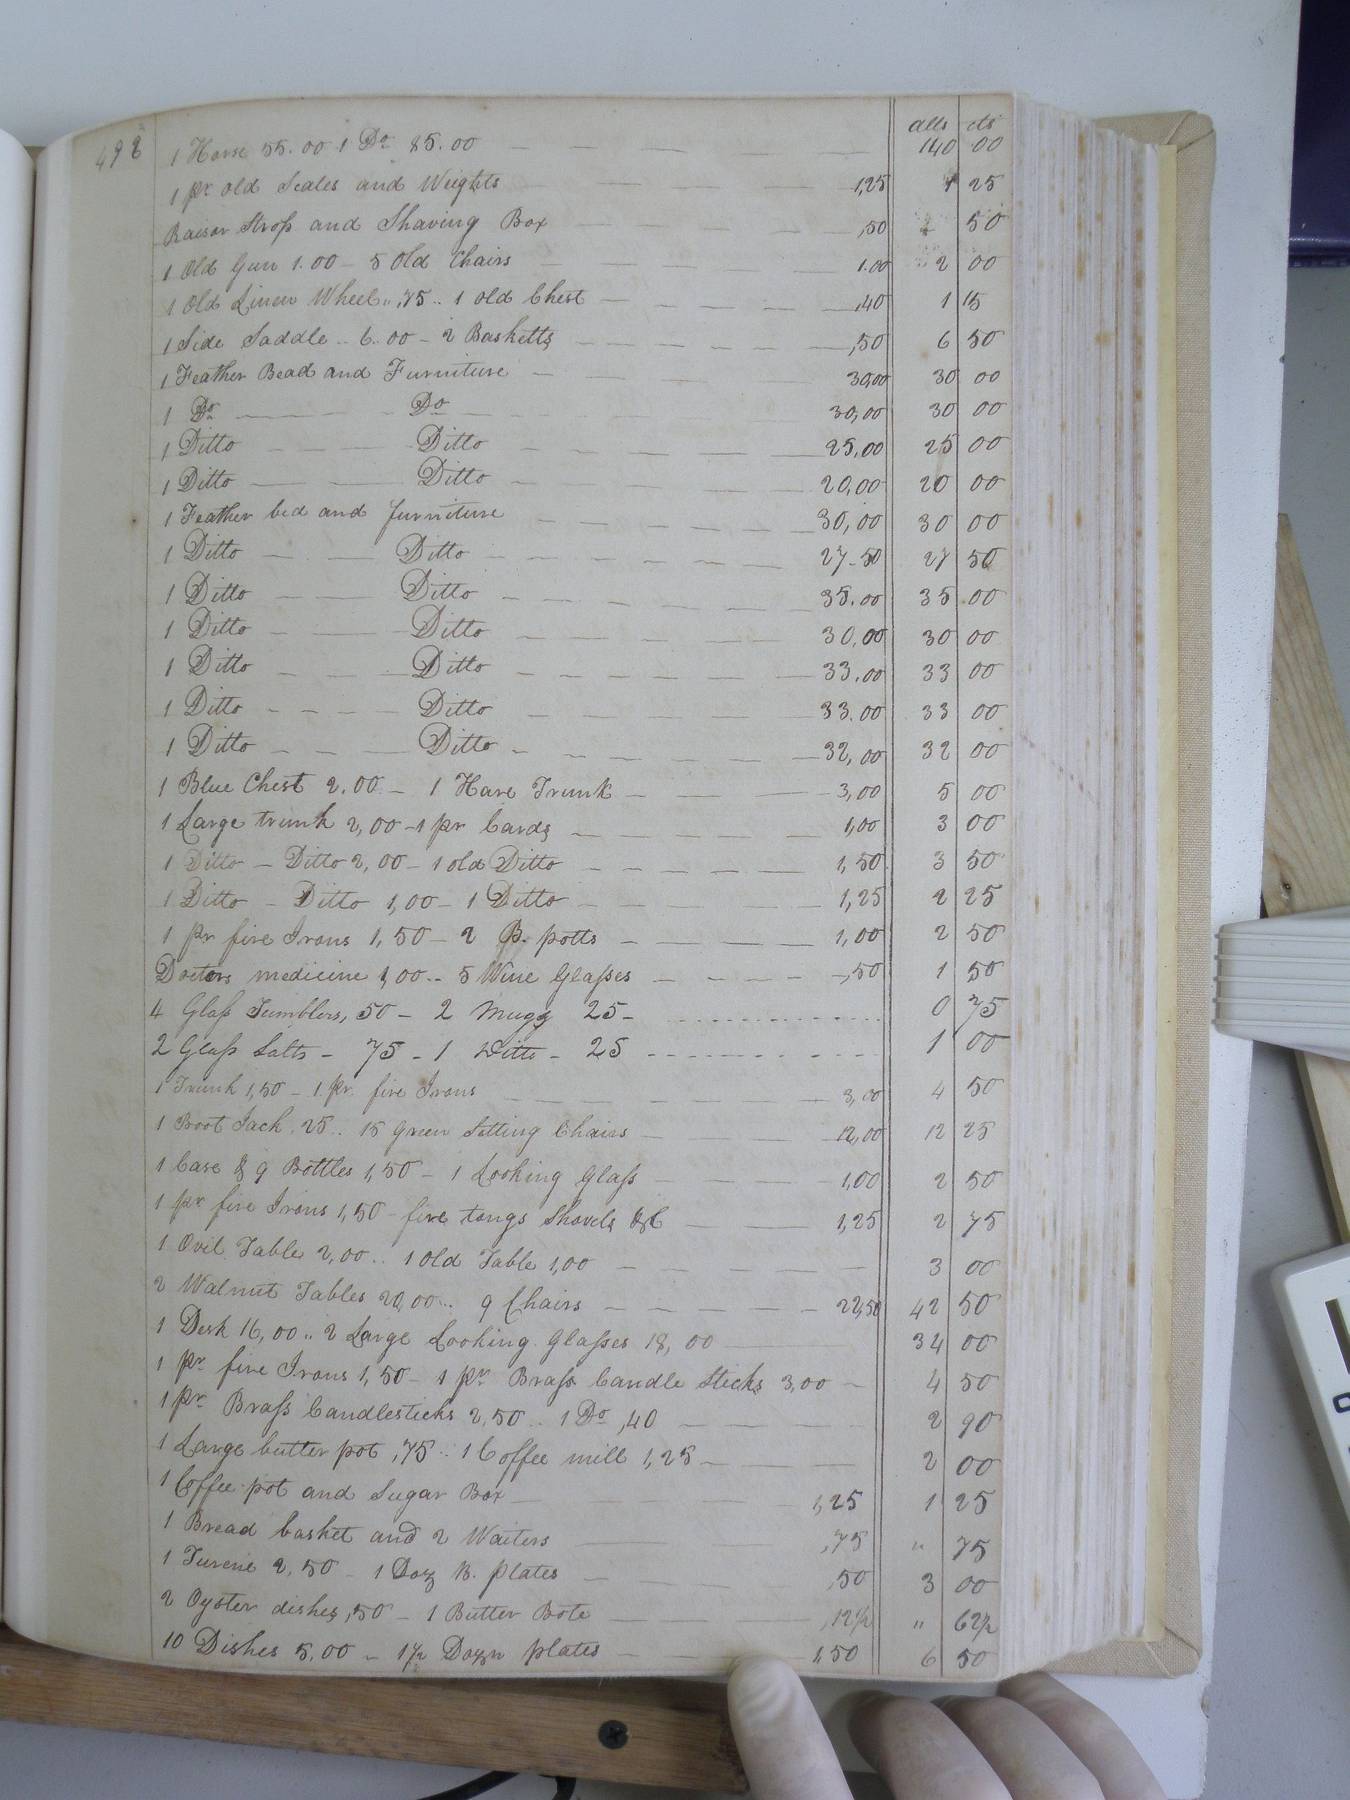 498
dlls cts
1 Horse 55.00 1 Do 85.00 140 00
1 pr old Scales and Weights 1,25 1 25
Raisor Strop and Shaving Box ,50 50
1 Old Gun 1.00 – 5 Old Chairs 1.00 2 00
1 Old Linen Wheel ,75 .. 1 old Chest ,40 1 15
1 Side Saddle .. 6.00 – 2 Basketts ,50 6 50
1 Feather Bead and Furniture 30,00 30 00
1 Do Do 30,00 30 00
1 Ditto Ditto 25,00 25 00
1 Ditto Ditto 20,00 20 00
1 Feather bed and furniture 30,00 30 00
1 Ditto Ditto 27-50 27 50
1 Ditto Ditto 35.00 35 00
1 Ditto Ditto 30,00 30 00
1 Ditto Ditto 33,00 33 00
1 Ditto Ditto 33.00 33 00
1 Ditto Ditto 32,00 32 00
1 Blue Chest 2.00 – 1 Hare Trunk 3,00 5 00
1 Large trunk 2,00 – 1 pr Cards 1,00 3 00
1 Ditto – Ditto 2,00 – 1 old Ditto 1,50 3 50
1 Ditto – Ditto 1,00 – 1 Ditto 1,25 2 25
1 pr fire Irons 1,50 – 2 B. potts 1,00 2 50
Doctors medicine 1,00 .. 5 Wine Glasses ,50 1 50
4 Glass Tumblers, 50 – 2 Mugs 25 – 0 75
2 Glass Salts – 75 – 1 Ditto – 25 1 00
1 Trunk 1,50 – 1 pr fire Irons 3,00 4 50
1 Boot Jack .25 .. 15 Green Setting Chairs 12,00 12 25
1 Case & 9 Bottles 1,50 – 1 Looking Glass 1,00 2 50
1 pr fire Irons 1,50 – fire tongs Shovels &C 1,25 2 75
1 Ovil Table 2,00 .. 1 Old Table 1,00 3 00
2 Walnut Tables 20,00 .. 9 Chairs 22,50 42 50
1 Desk 16,00 .. 2 Large Looking Glasses 18,00 34 00
1 pr fire Irons 1,50 – 1 pr Brass Candle Sticks 3,00 – 4 50
1 pr Brass Candlesticks 2,50 .. 1 Do ,40 2 90
1 Large butter pot ,75 .. 1 Coffee mill 1,25 2 00
1 Coffee pot and Sugar Box 1,25 1 25
1 Bread basket and 2 Waiters ,75 " 75
1 Turene 2,50 – 1 Doz B. plates ,50 3 00
2 Oyster dishes ,50 – 1 Butter Bote ,12½ " 62½
10 Dishes 5,00 – 1½ Dozn plates 1,50 6 50